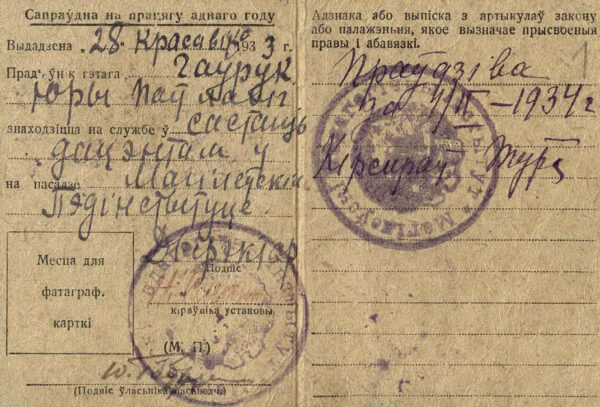 Сапраўдна на працягу аднаго году
Выдадзена 28 красавіка 1933 г.
Прад'ўнік гэтага Гаўрук
Юры Паўлавіч
знаходзіцца на службе ў
дацэнтам у
на пасадзе Магілеўскім
Пэдінстытуце
Дырэктар
Месца для
фатаграф.
карткі
Подпіс
кіраўніка установы
(М. П.)
(Подпіс ўласьніка пасьведч.)
Адзнака або выпіска з артыкулаў закону
або палажэньня, якое вызначае прысвоеныя
правы і абавязкі.
1
Праўдзіва
да 1/II–1934 г